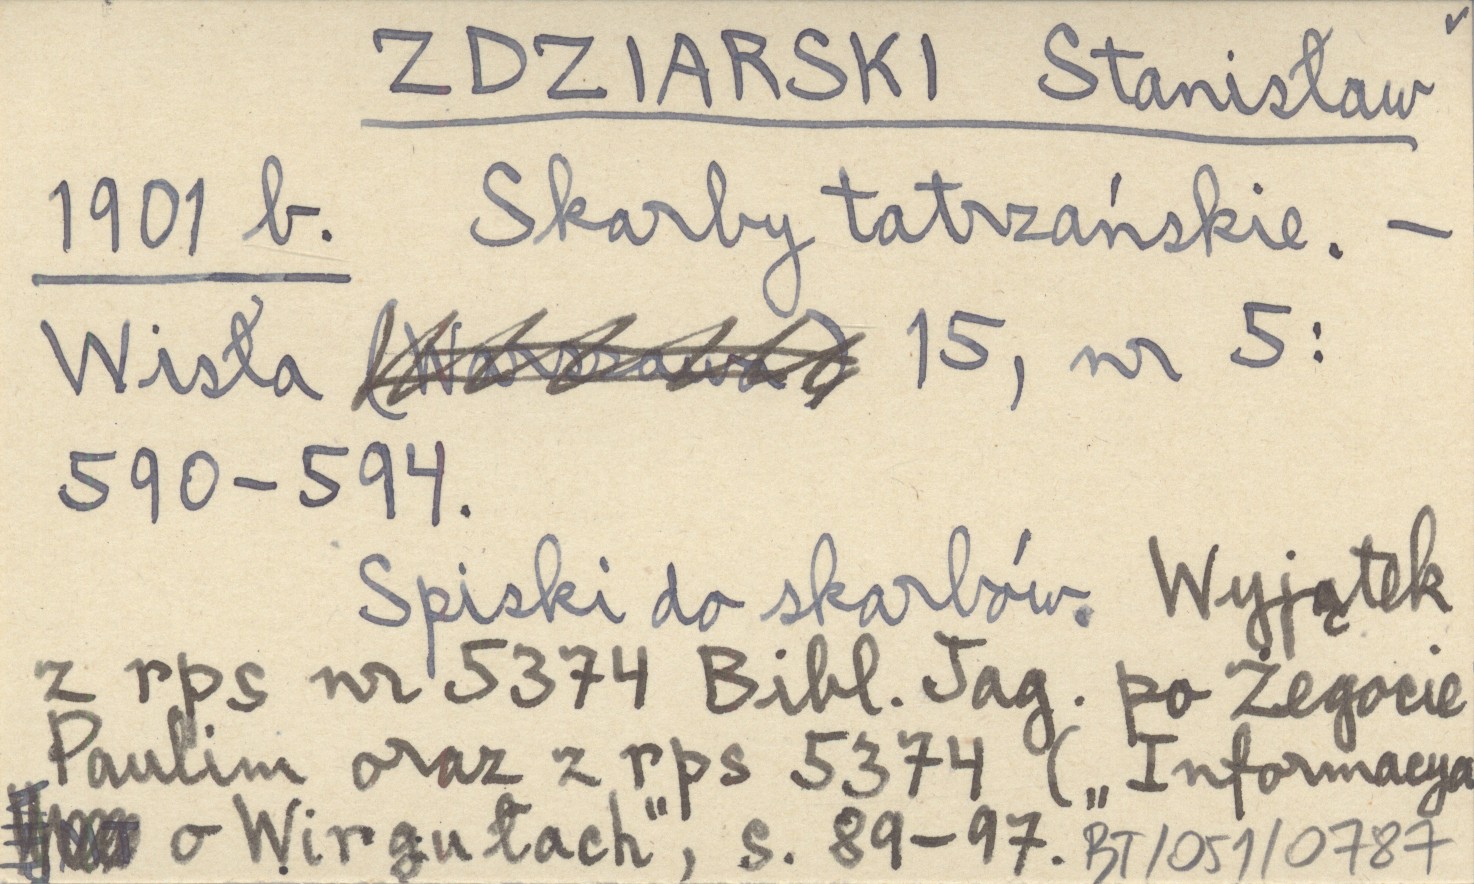 ZDZIARSKI Stanisław
1901 b. Skarby tatrzańskie. –
Wisła (Warszawa) 15, nr 5:
590–594.
Spiski do skarbów. Wyjątek
z rps nr 5374 Bibl. Jag. po Żegocie
Paulim oraz z rps 5374 („Informacya
o Wirgułach", s. 89–97. BT/051/0787